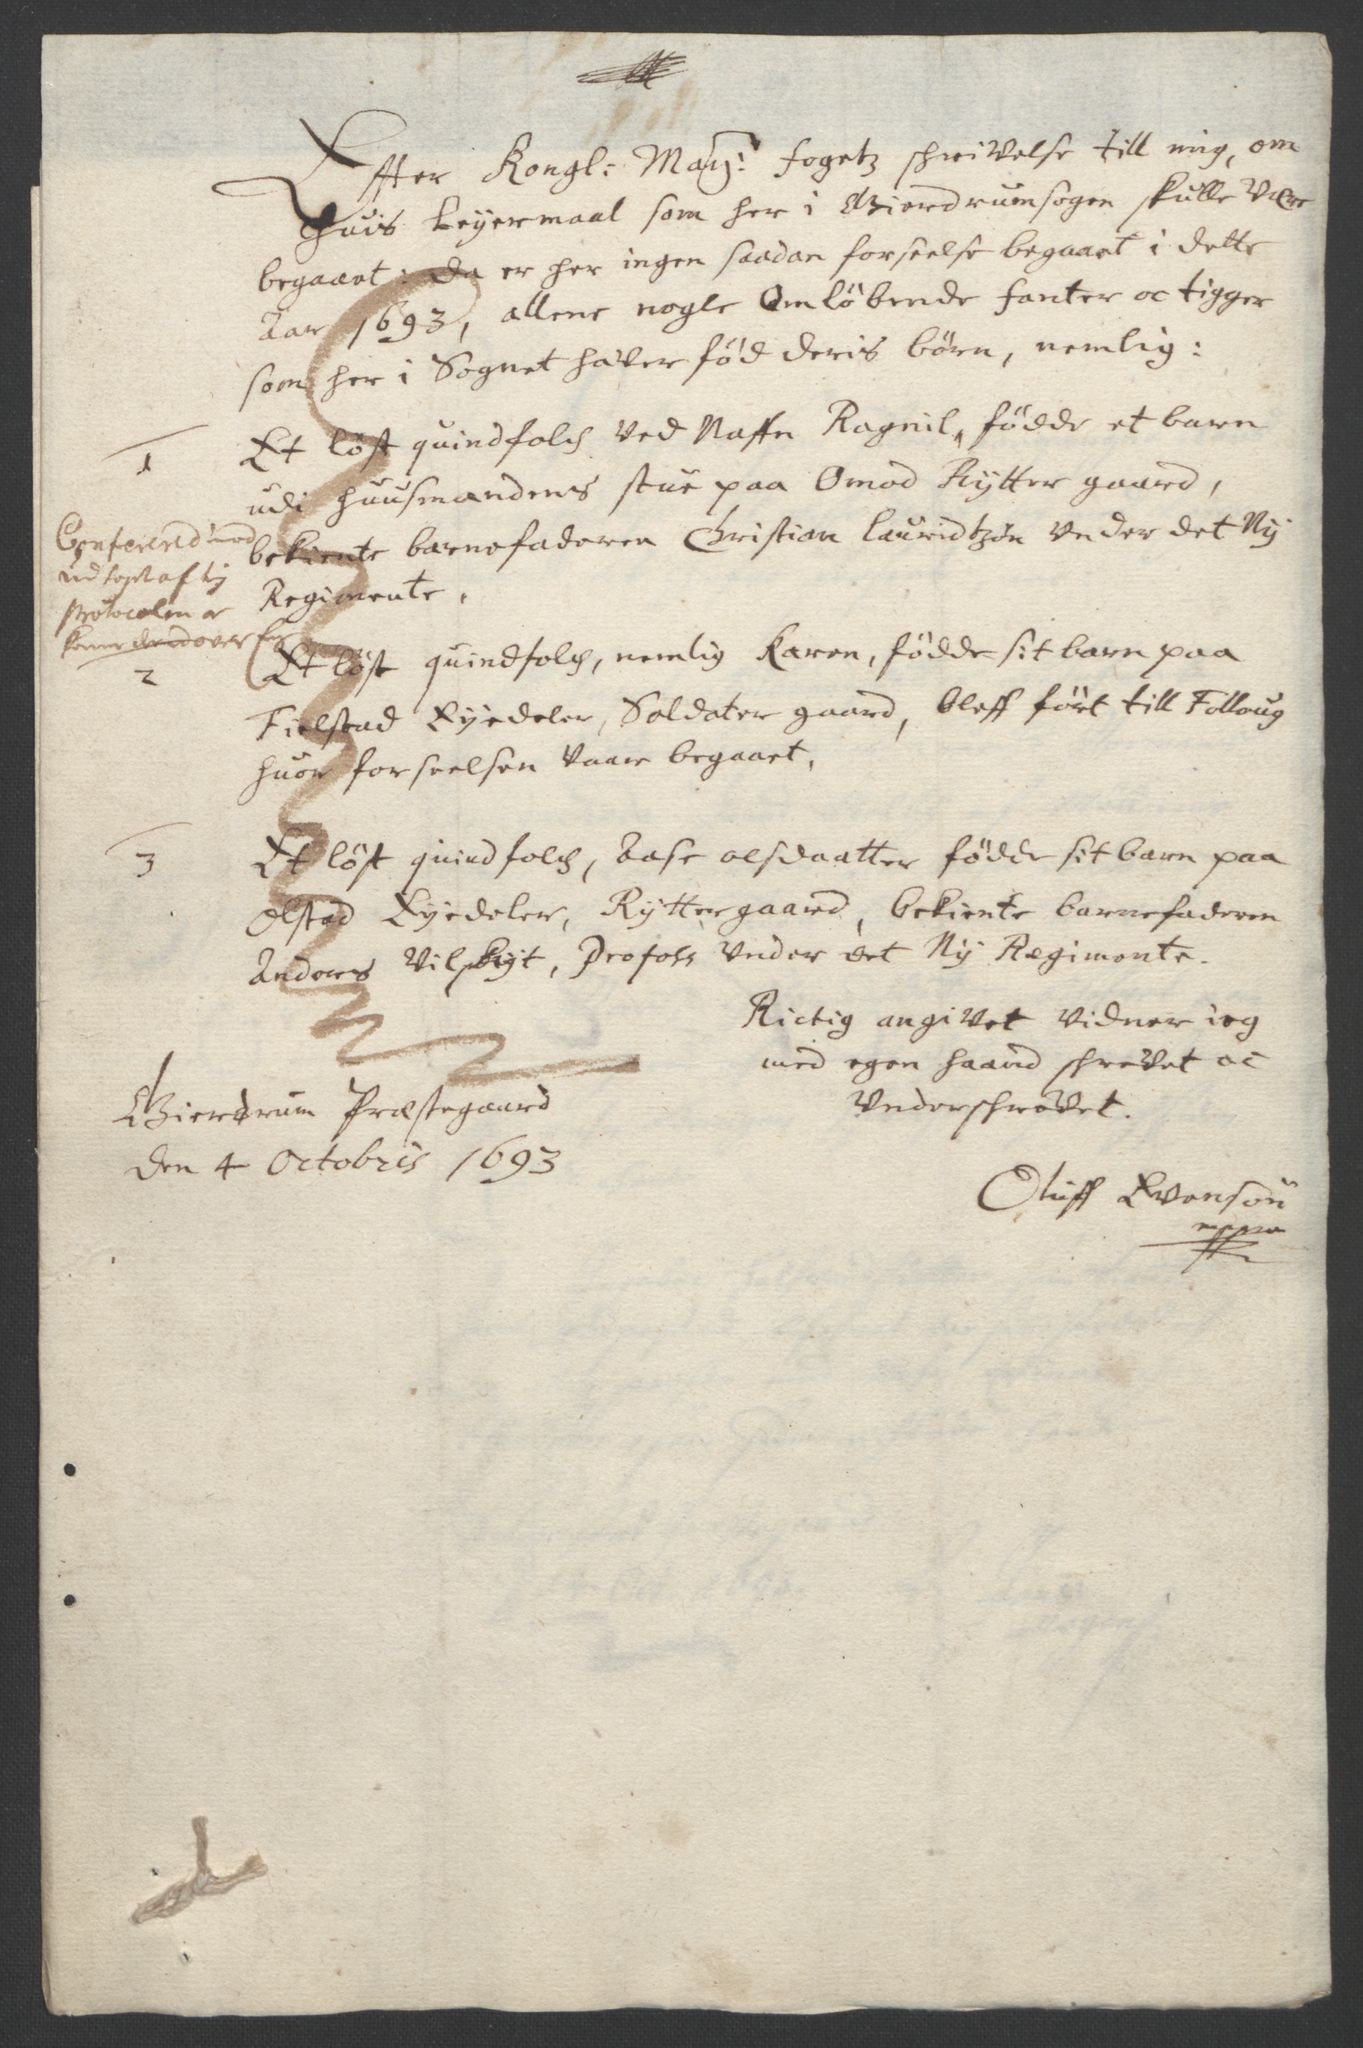 Effter Kongl: May: fogetz schrivelse till mig, om
huis Leyermaal som her i Gierdrumsogen skulle være
begaaet: da er her ingen saadan forseelse begaaet i dette
Aar 1693, allene nogle Omløbende fanter oc tigger
som her i Sognet haver fød deris børn, nemlig:
1 Et løst quindfolch ved Naffn Ragnil, fødde et barn
udi huusmandens stue paa Omod Rytter gaard,
bekiente barnefaderen Christian Lauridtzøn under det Ny
Regimente.
Confererid mod
udtoget af
protocolen
2 Et løst quindfolch, nemlig Karen, fødde sit barn paa
Fielstad Eyedeler, Soldater gaard, bleff ført till Folloug
huor forseelsen vaar begaaet.
3 Et løst quindfolch, Aase olsdaatter fødde sit barn paa
Olstad Eyedeler, Ryttergaard, bekiente barnefaderen
Anders Vilskyt, Profoss under det Ny Regimente.
Rictig angivet vidner ieg
med egen haand schrevet oc
Underschrevet.
Gierdrum Præstegaard
den 4 Octobris 1693
Oluff Evensøn
mppra